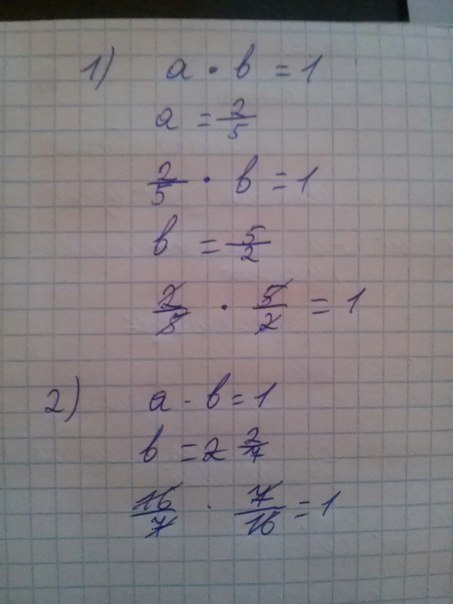 1) a · b = 1
a = 2/5
2/5 · b = 1
b = 5/2
2/5 · 5/2 = 1
2) a · b = 1
b = 2 2/7
16/7 · 7/16 = 1